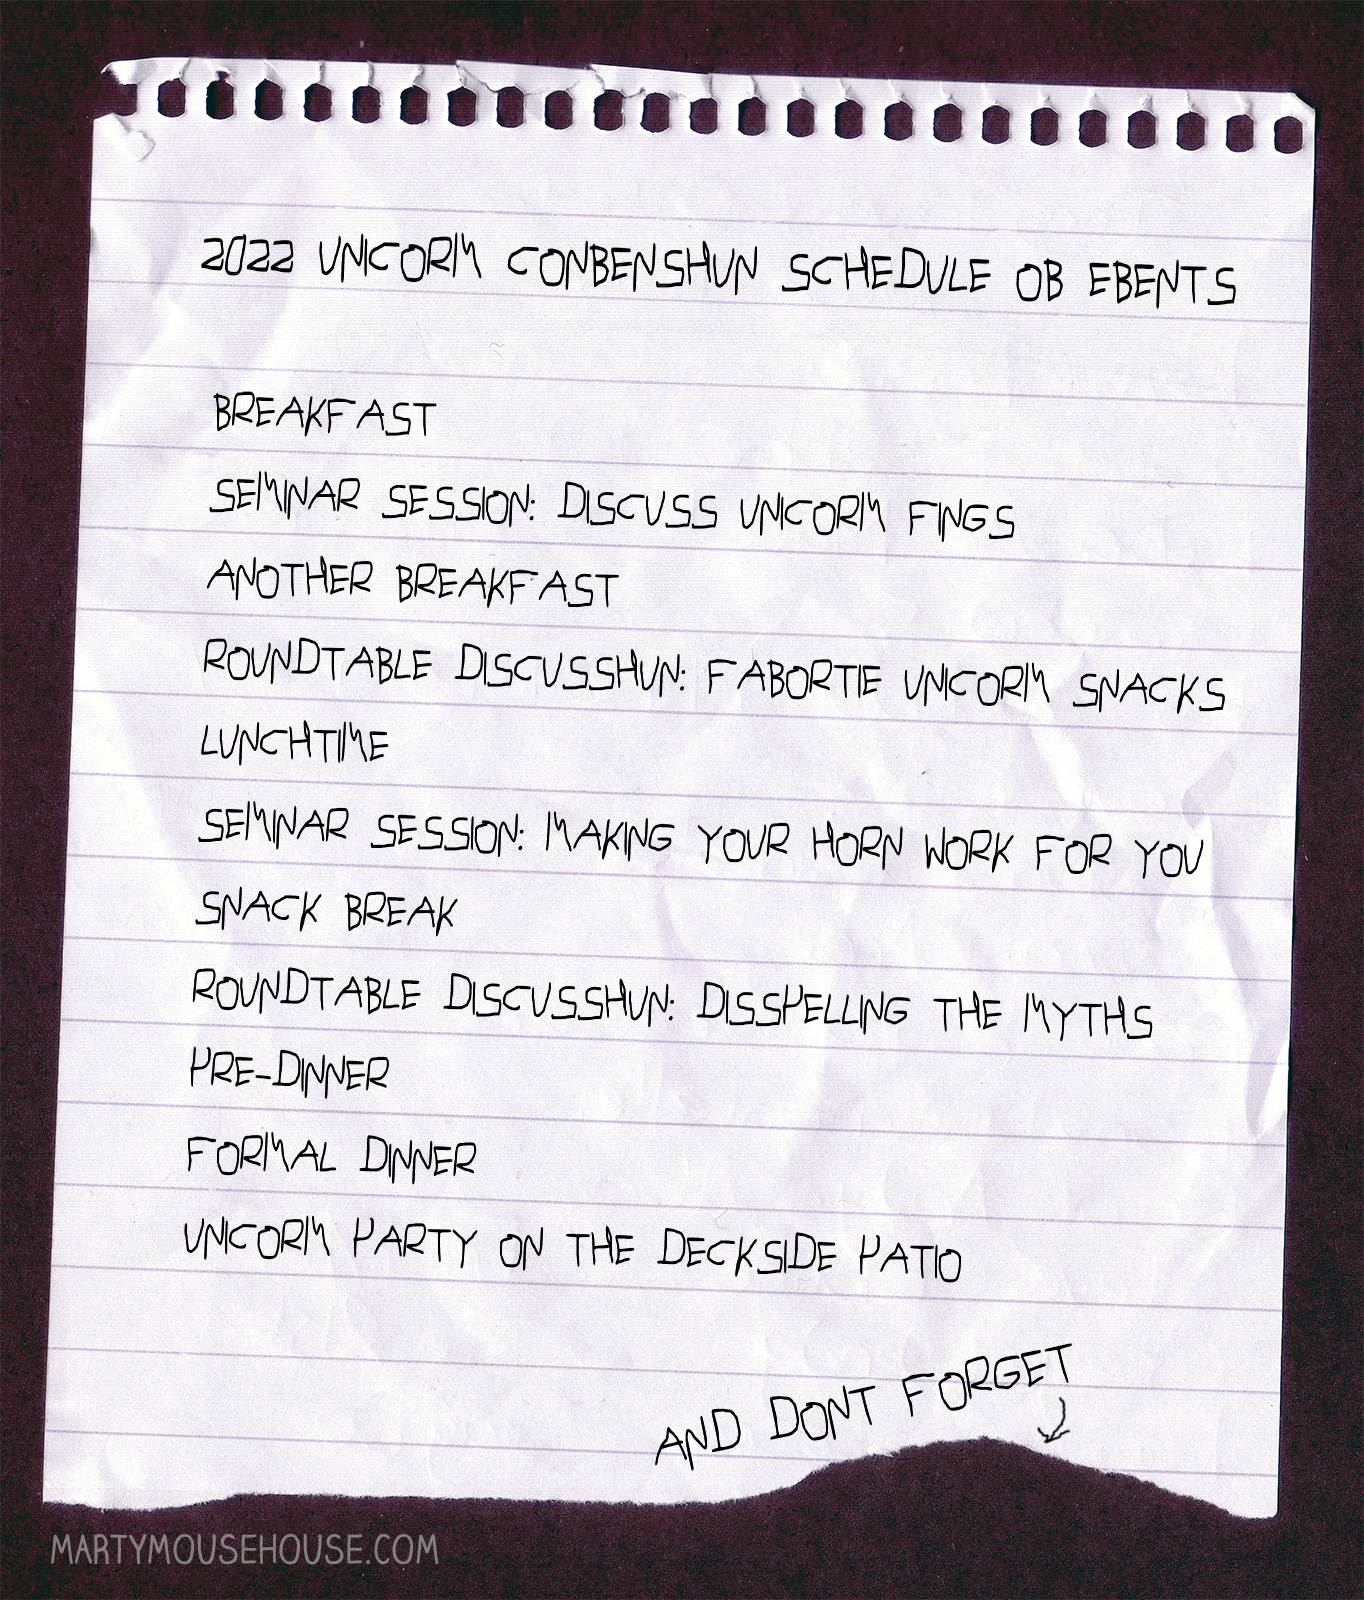 2022 UNICORM CONBENSHUN SCHEDULE OB EBENTS
BREAKFAST
SEMINAR SESSION: DISCUSS UNICORM FINGS
ANOTHER BREAKFAST
ROUNDTABLE DISCUSSHUN: FABORTIE UNICORM SNACKS
LUNCHTIME
SEMINAR SESSION: MAKING YOUR HORN WORK FOR YOU
SNACK BREAK
ROUNDTABLE DISCUSSHUN: DISSPELLING THE MYTHS
PRE-DINNER
FORMAL DINNER
UNICORM PARTY ON THE DECKSIDE PATIO
AND DONT FORGET
MARTYMOUSEHOUSE.COM